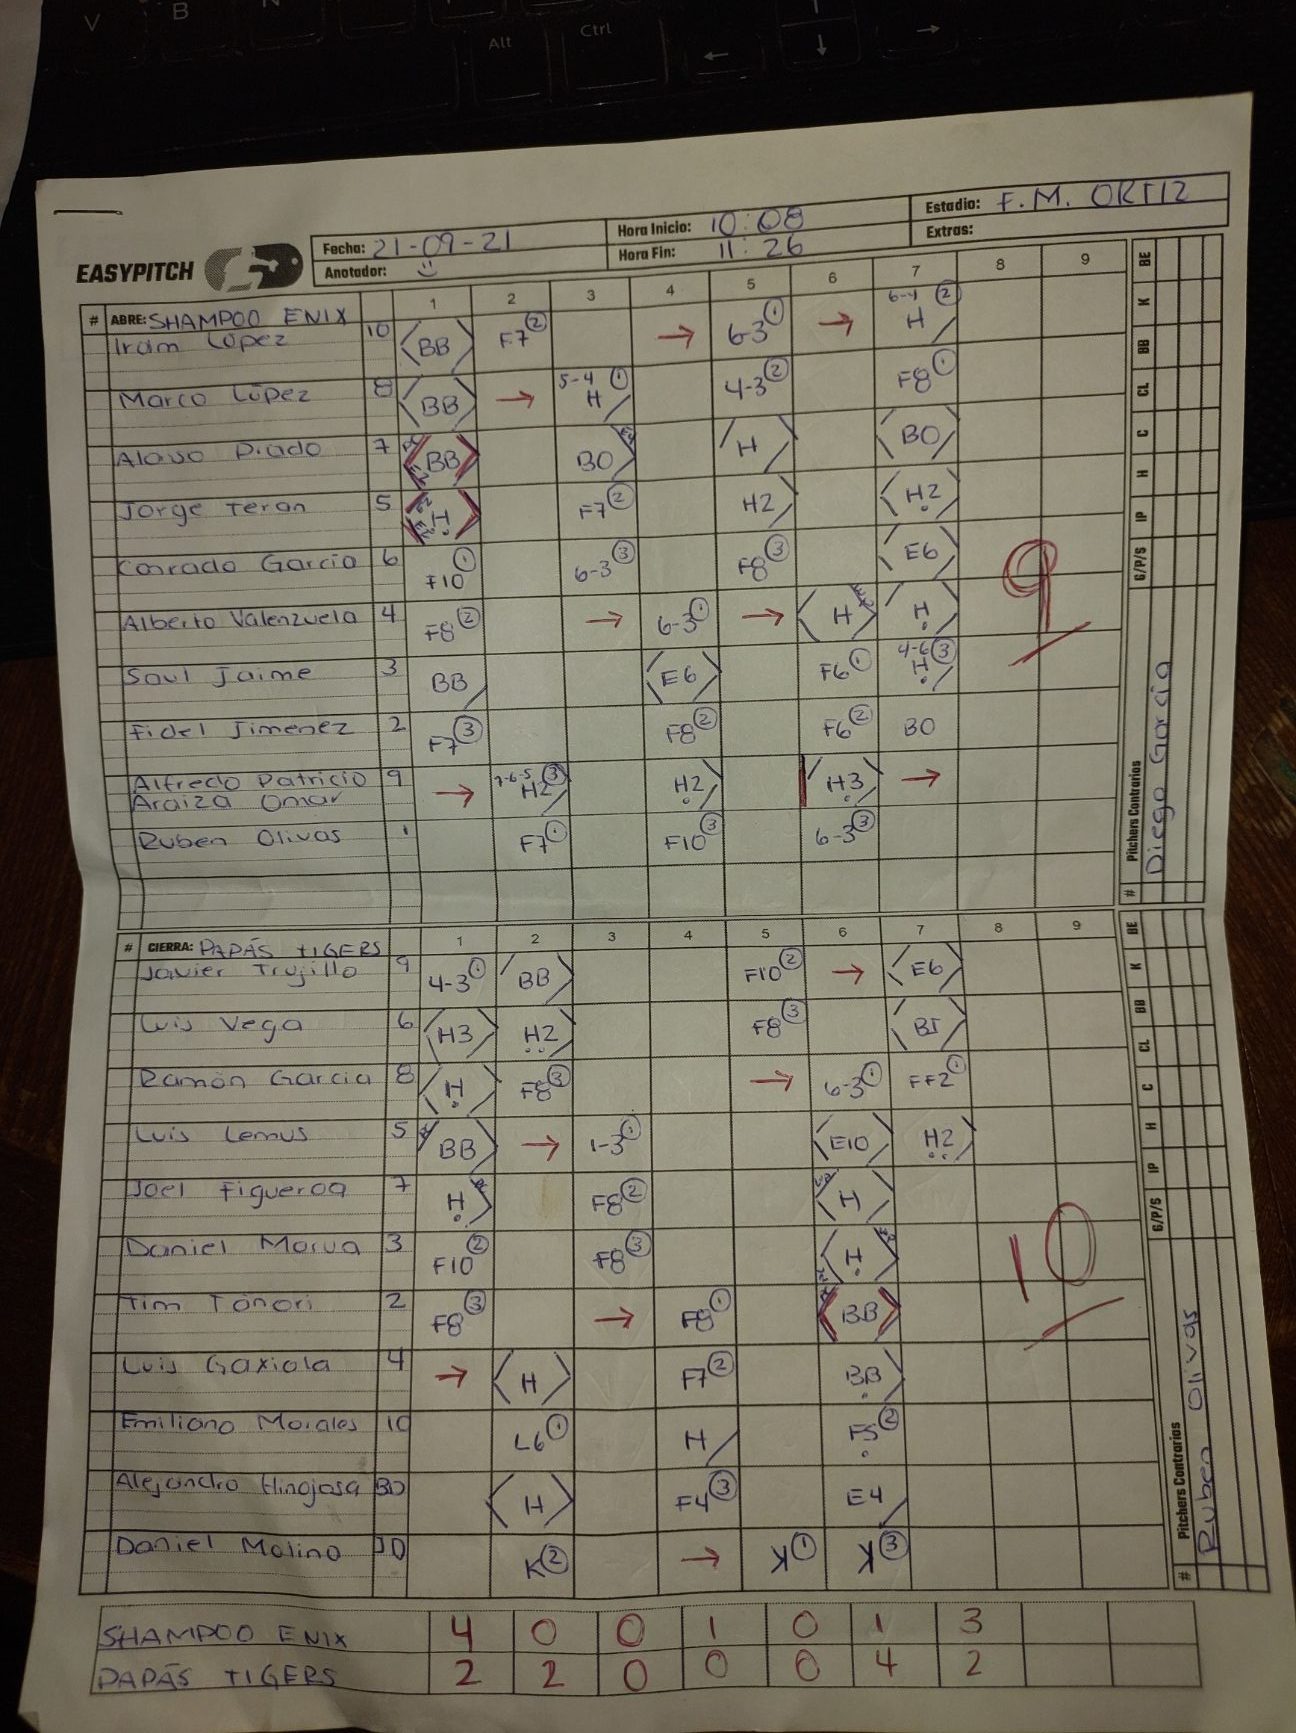 V B N
Alt Ctrl ← ↓ →
EASYPITCH
Fecha: 21-09-21 Hora Inicio: 10:08 Estadio: F.M. ORTIZ
Anotador: Hora Fin: 11:26 Extras:
# ABRE: SHAMPOO ENIX 1 2 3 4 5 6 7 8 9
Iram López 10 BB F7② → 6-3① → 6-4② H
Marco López 8 BB → 5-4① H 4-3② F8①
Prado 7 BB BO H BO
Jorge Teran 5 H F7② H2 H2
Conrado Garcia 6 F10① 6-3③ F8③ E6
Alberto Valenzuela 4 F8② → 6-3① → H H
Saul Jaime 3 BB E6 F6① 4-6③ H
Fidel Jimenez 2 F7③ F8② F6② BO
Alfredo Patricio 9 → 7-6-5③ H2 H2 H3 →
Araiza Omar
Ruben Olivas 1 F7① F10③ 6-3③
9
# Pitchers Contrarios G/P/S IP H C CL BB K BE
Diego Garcia
# CIERRA: PAPÁS TIGERS 1 2 3 4 5 6 7 8 9
Javier Trujillo 9 4-3① BB F10② → E6
Luis Vega 6 H3 H2 F8③ BI
Ramón Garcia 8 H F8③ → 6-3① FF2①
Luis Lemus 5 BB → 1-3① E10 H2
Joel Figueroa 7 H F8② H
Daniel Morua 3 F10② F8③ H
Tim Tánori 2 F8③ → F8① BB
Luis Gaxiola 4 → H F7② BB
Emiliano Morales 10 L6① H F5②
Alejandro Hinojosa BD H F4③ E4
Daniel Molina JD K② → K① K③
10
# Pitchers Contrarios G/P/S IP H C CL BB K BE
Ruben Olivas
SHAMPOO ENIX 4 0 0 1 0 1 3
PAPÁS TIGERS 2 2 0 0 0 4 2